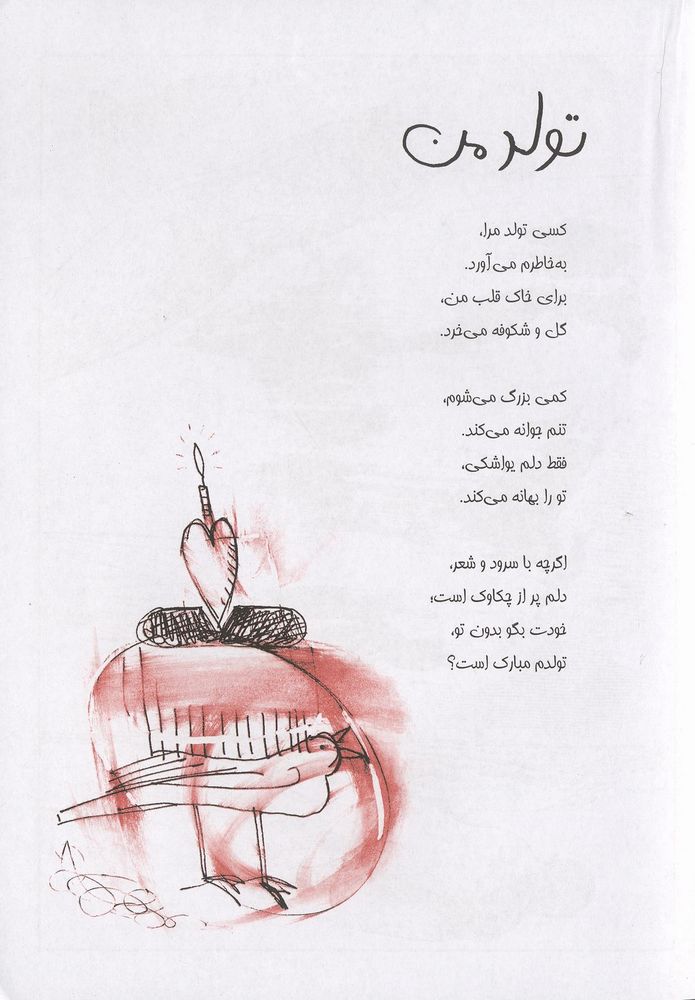 تولد من
کسی تولد مرا،
به‌خاطرم می‌آورد.
برای خاک قلب من،
گل و شکوفه می‌خرد.
کمی بزرگ می‌شوم،
تنم جوانه می‌کند.
فقط دلم یواشکی،
تو را بهانه می‌کند.
اگرچه با سرود و شعر،
دلم پر از چکاوک است؛
خودت بگو بدون تو،
تولدم مبارک است؟